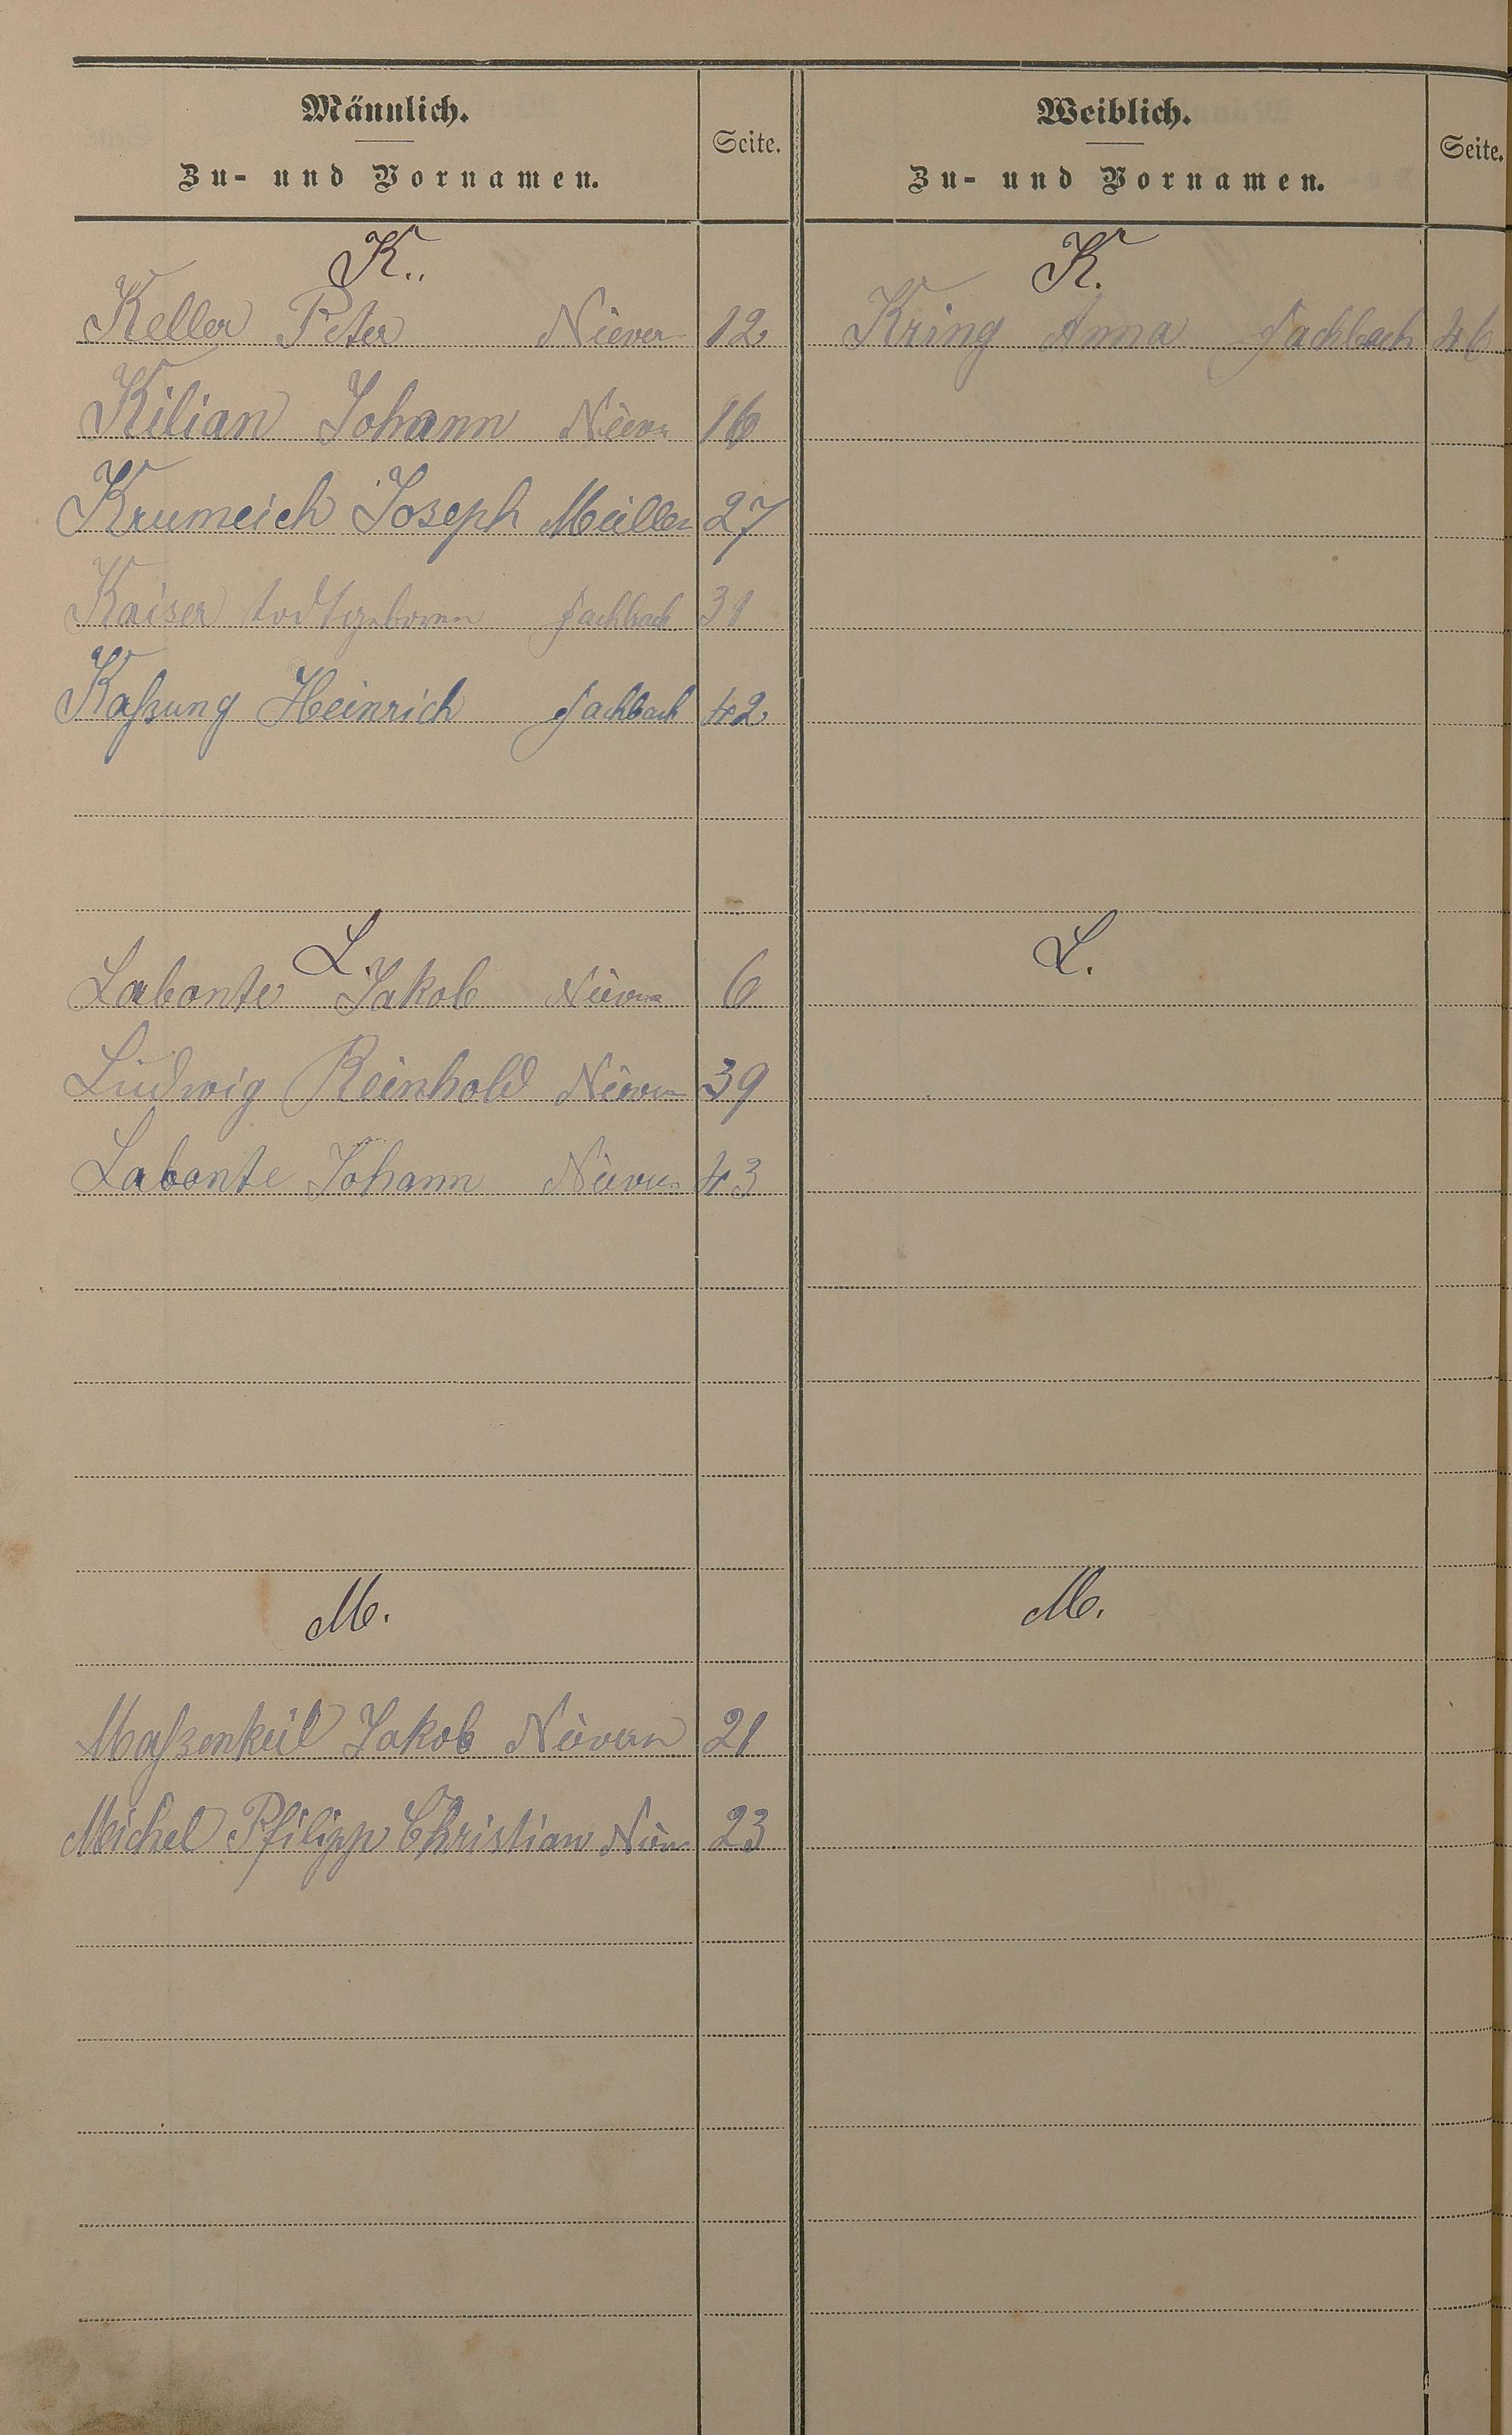 Männlich.
Zu- und Vornamen.
Seite.
K.
Keller Peter Niever 12
Kilian Johann Nievern 16
Krumeich Joseph Müllen 27
Kaiser todtgeboren Fachbach 31
Kaßung Heinrich Fachbach 42
L.
Labonte Jakob Nievern 6
Ludwig Reinhold Nievern 39
Labonte Johann Nievern 43
M.
Maßenkeil Jakob Nievern 21
Michel Philipp Christian 23
Weiblich.
Zu- und Vornamen.
Seite.
K.
Kring Anna Fachbach 46
L.
M.